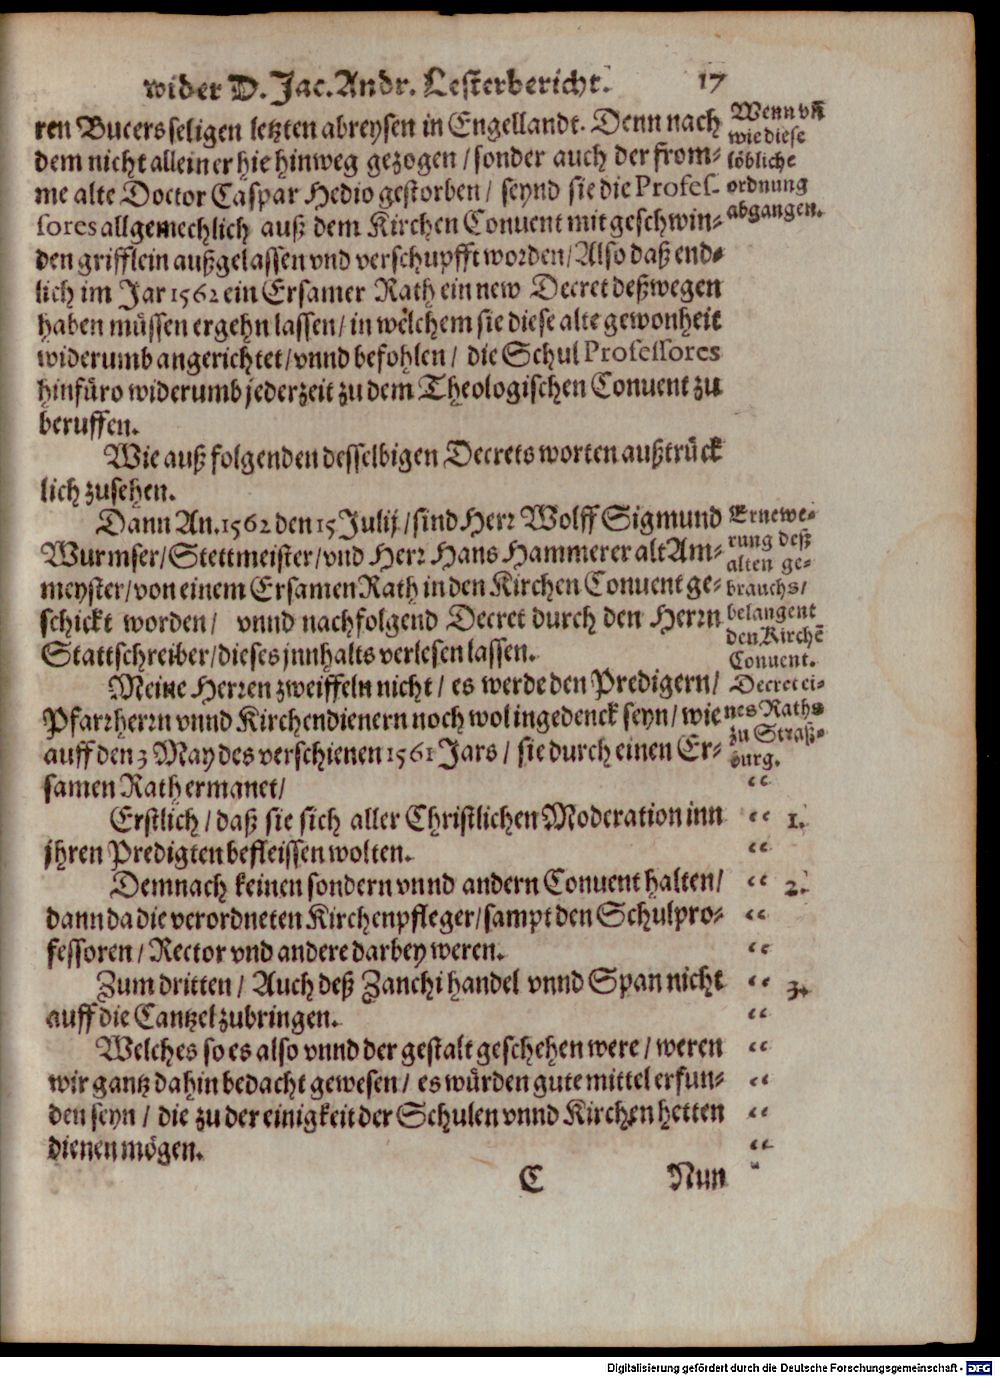 wider D. Jac. Andr. Lesterbericht. 17
ren Bucers seligen letzten abreysen in Engellandt. Denn nach
dem nicht allein er hie hinweg gezogen / sonder auch der from⸗
me alte Doctor Caspar Hedio gestorben / seynd sie die Profes-
sores allgemechlich auß dem Kirchen Conuent mit geschwin⸗
den grifflein außgelassen vnd verschupfft worden / Also daß end⸗
lich im Jar 1562 ein Ersamer Rath ein new Decret deßwegen
haben müssen ergehn lassen / in welchem sie diese alte gewonheit
widerumb angerichtet / vnnd befohlen / die Schul Professores
hinfüro widerumb jederzeit zu dem Theologischen Conuent zu
beruffen.
Wenn vñ
wie diese
löbliche
ordnung
abgangen.
Wie auß folgenden desselbigen Decrets worten außtrück
lich zusehen.
Dann An. 1562 den 15 Julij / sind Herr Wolff Sigmund
Wurmser / Stettmeister / vnd Herr Hans Hammerer alt Am⸗
meyster / von einem Ersamen Rath in den Kirchen Conuent ge⸗
schickt worden / vnnd nachfolgend Decret durch den Herrn
Stattschreiber / dieses jnnhalts verlesen lassen.
Ernewe⸗
rung deß
alten ge⸗
brauchs /
belangent
den Kirchẽ
Conuent.
Meine Herren zweiffeln nicht / es werde den Predigern /
Pfarrherrn vnnd Kirchendienern noch wol ingedenck seyn / wie
auff den 3 May des verschienen 1561 Jars / sie durch einen Er⸗
samen Rath ermanet /
Decret ei⸗
nes Raths
zu Straß⸗
burg.
“
Erstlich / daß sie sich aller Christlichen Moderation inn “ 1.
jhren Predigten befleissen wolten. “
Demnach keinen sondern vnnd andern Conuent halten / “ 2.
dann da die verordneten Kirchenpfleger / sampt den Schulpro⸗ “
fessoren / Rector vnd andere darbey weren. “
Zum dritten / Auch deß Zanchi handel vnnd Span nicht “ 3.
auff die Cantzel zubringen. “
Welches so es also vnnd der gestalt geschehen were / weren “
wir gantz dahin bedacht gewesen / es würden gute mittel erfun⸗ “
den seyn / die zu der einigkeit der Schulen vnnd Kirchen hetten “
dienen mögen. “
C Nun “
Digitalisierung gefördert durch die Deutsche Forschungsgemeinschaft - DFG